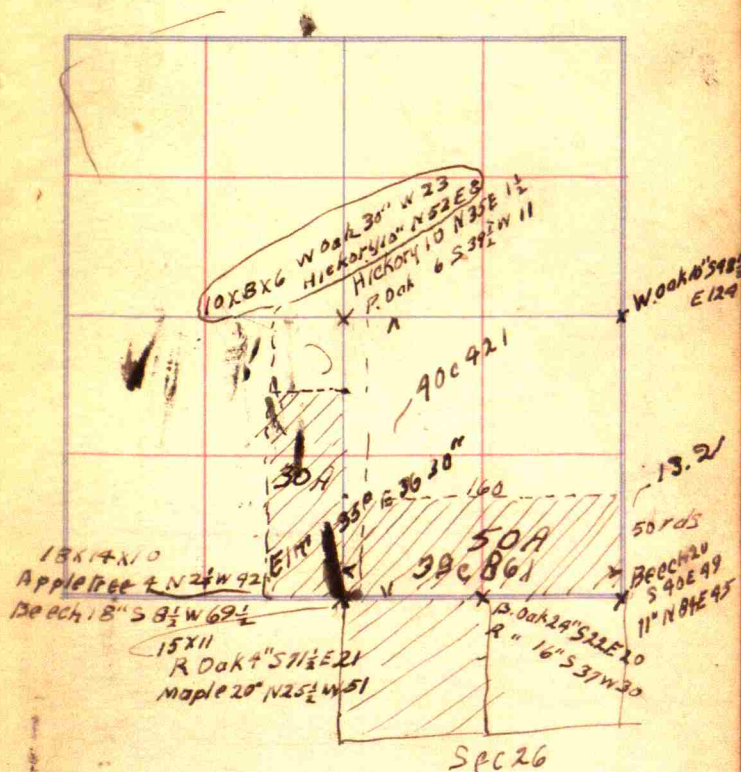 10X8X6 W Oak 30" W 23
Hickory 10" N52E8
Hickory 10 N35E 1½
P. Oak 6 S39½W 11
W. Oak 10" S48½
E 124
40c 421
30A
E 11"
35° E 36 30"
160
13.21
50 rds
50A
39c 861
Beech 20
S 40E 49
11" N 84E 45
18X14X10
Appletree 4 N2½W 92
Beech 18" S 8½ W 69½
15X11
R Oak 4" S71½E 21
Maple 20" N25½W 51
B. Oak 24" S22E 20
R " 16" S 37W 30
Sec 26